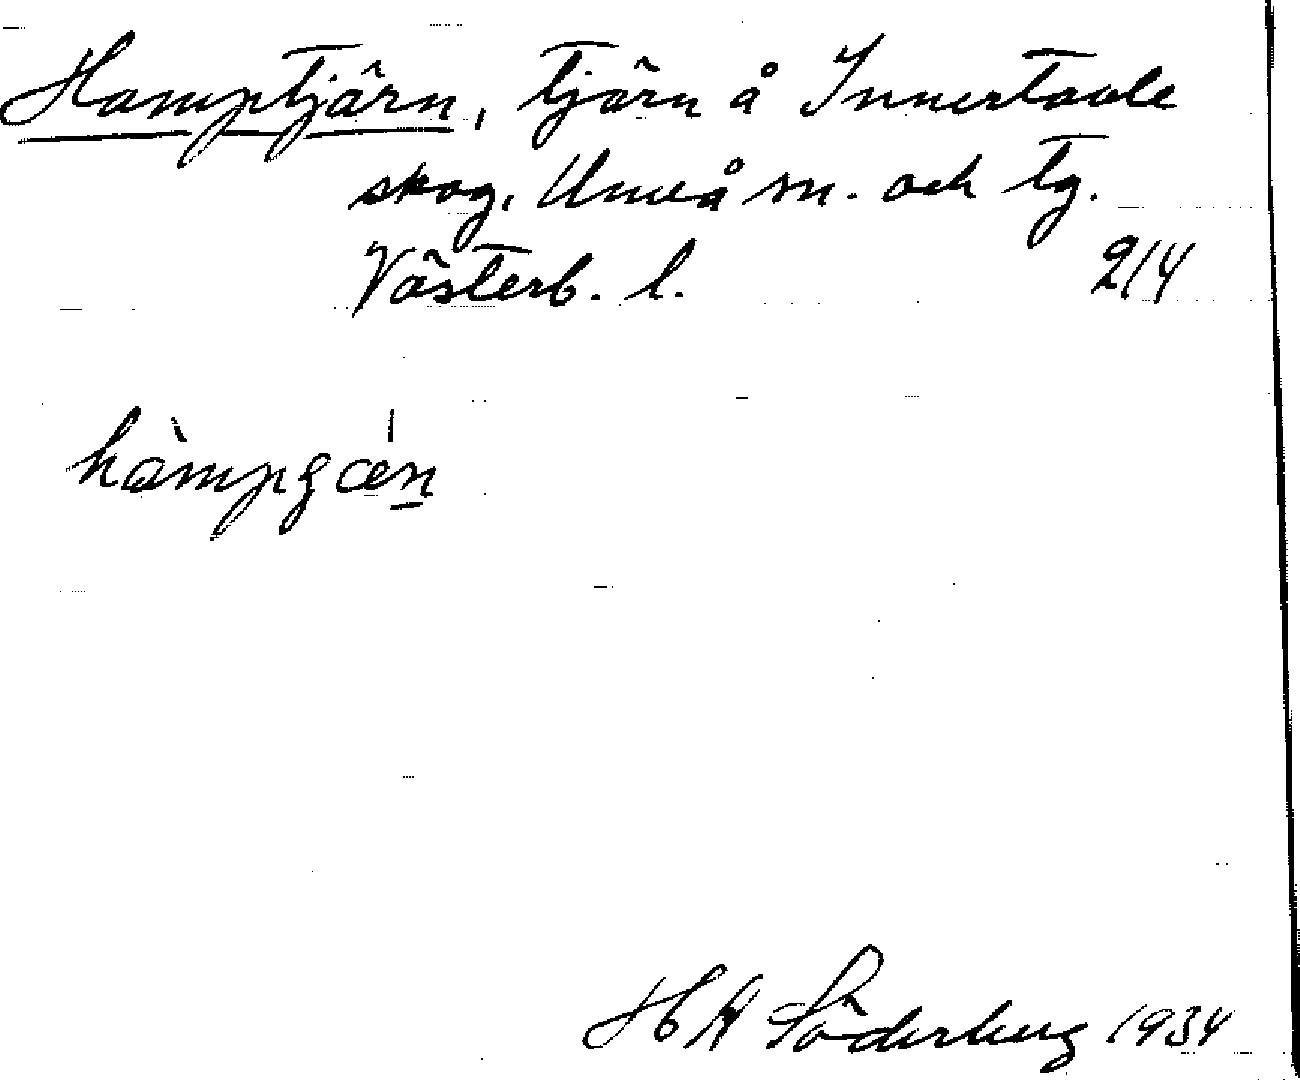 Hamptjärn, tjärn å Innertavle
skog, Umeå sn. och tg.
Västerb. l. 214
H A Söderberg 1934